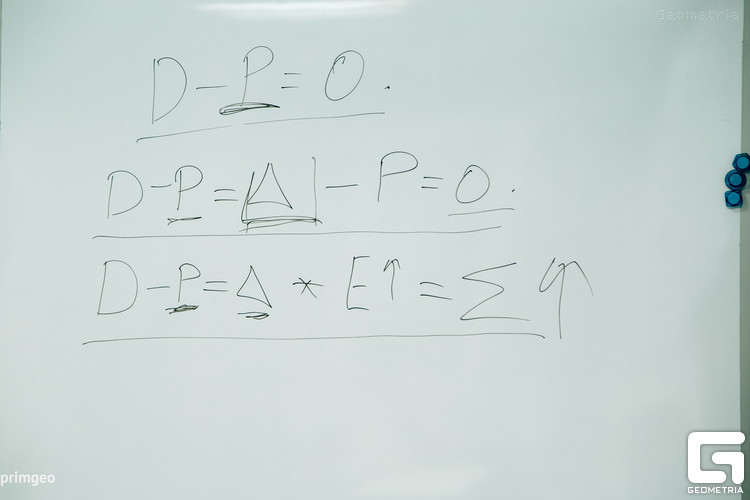 Geometria
D - P = 0.
D - P = Δ - P = 0.
D - P = Δ * E↑ = Σ ↑
primgeo
GEOMETRIA